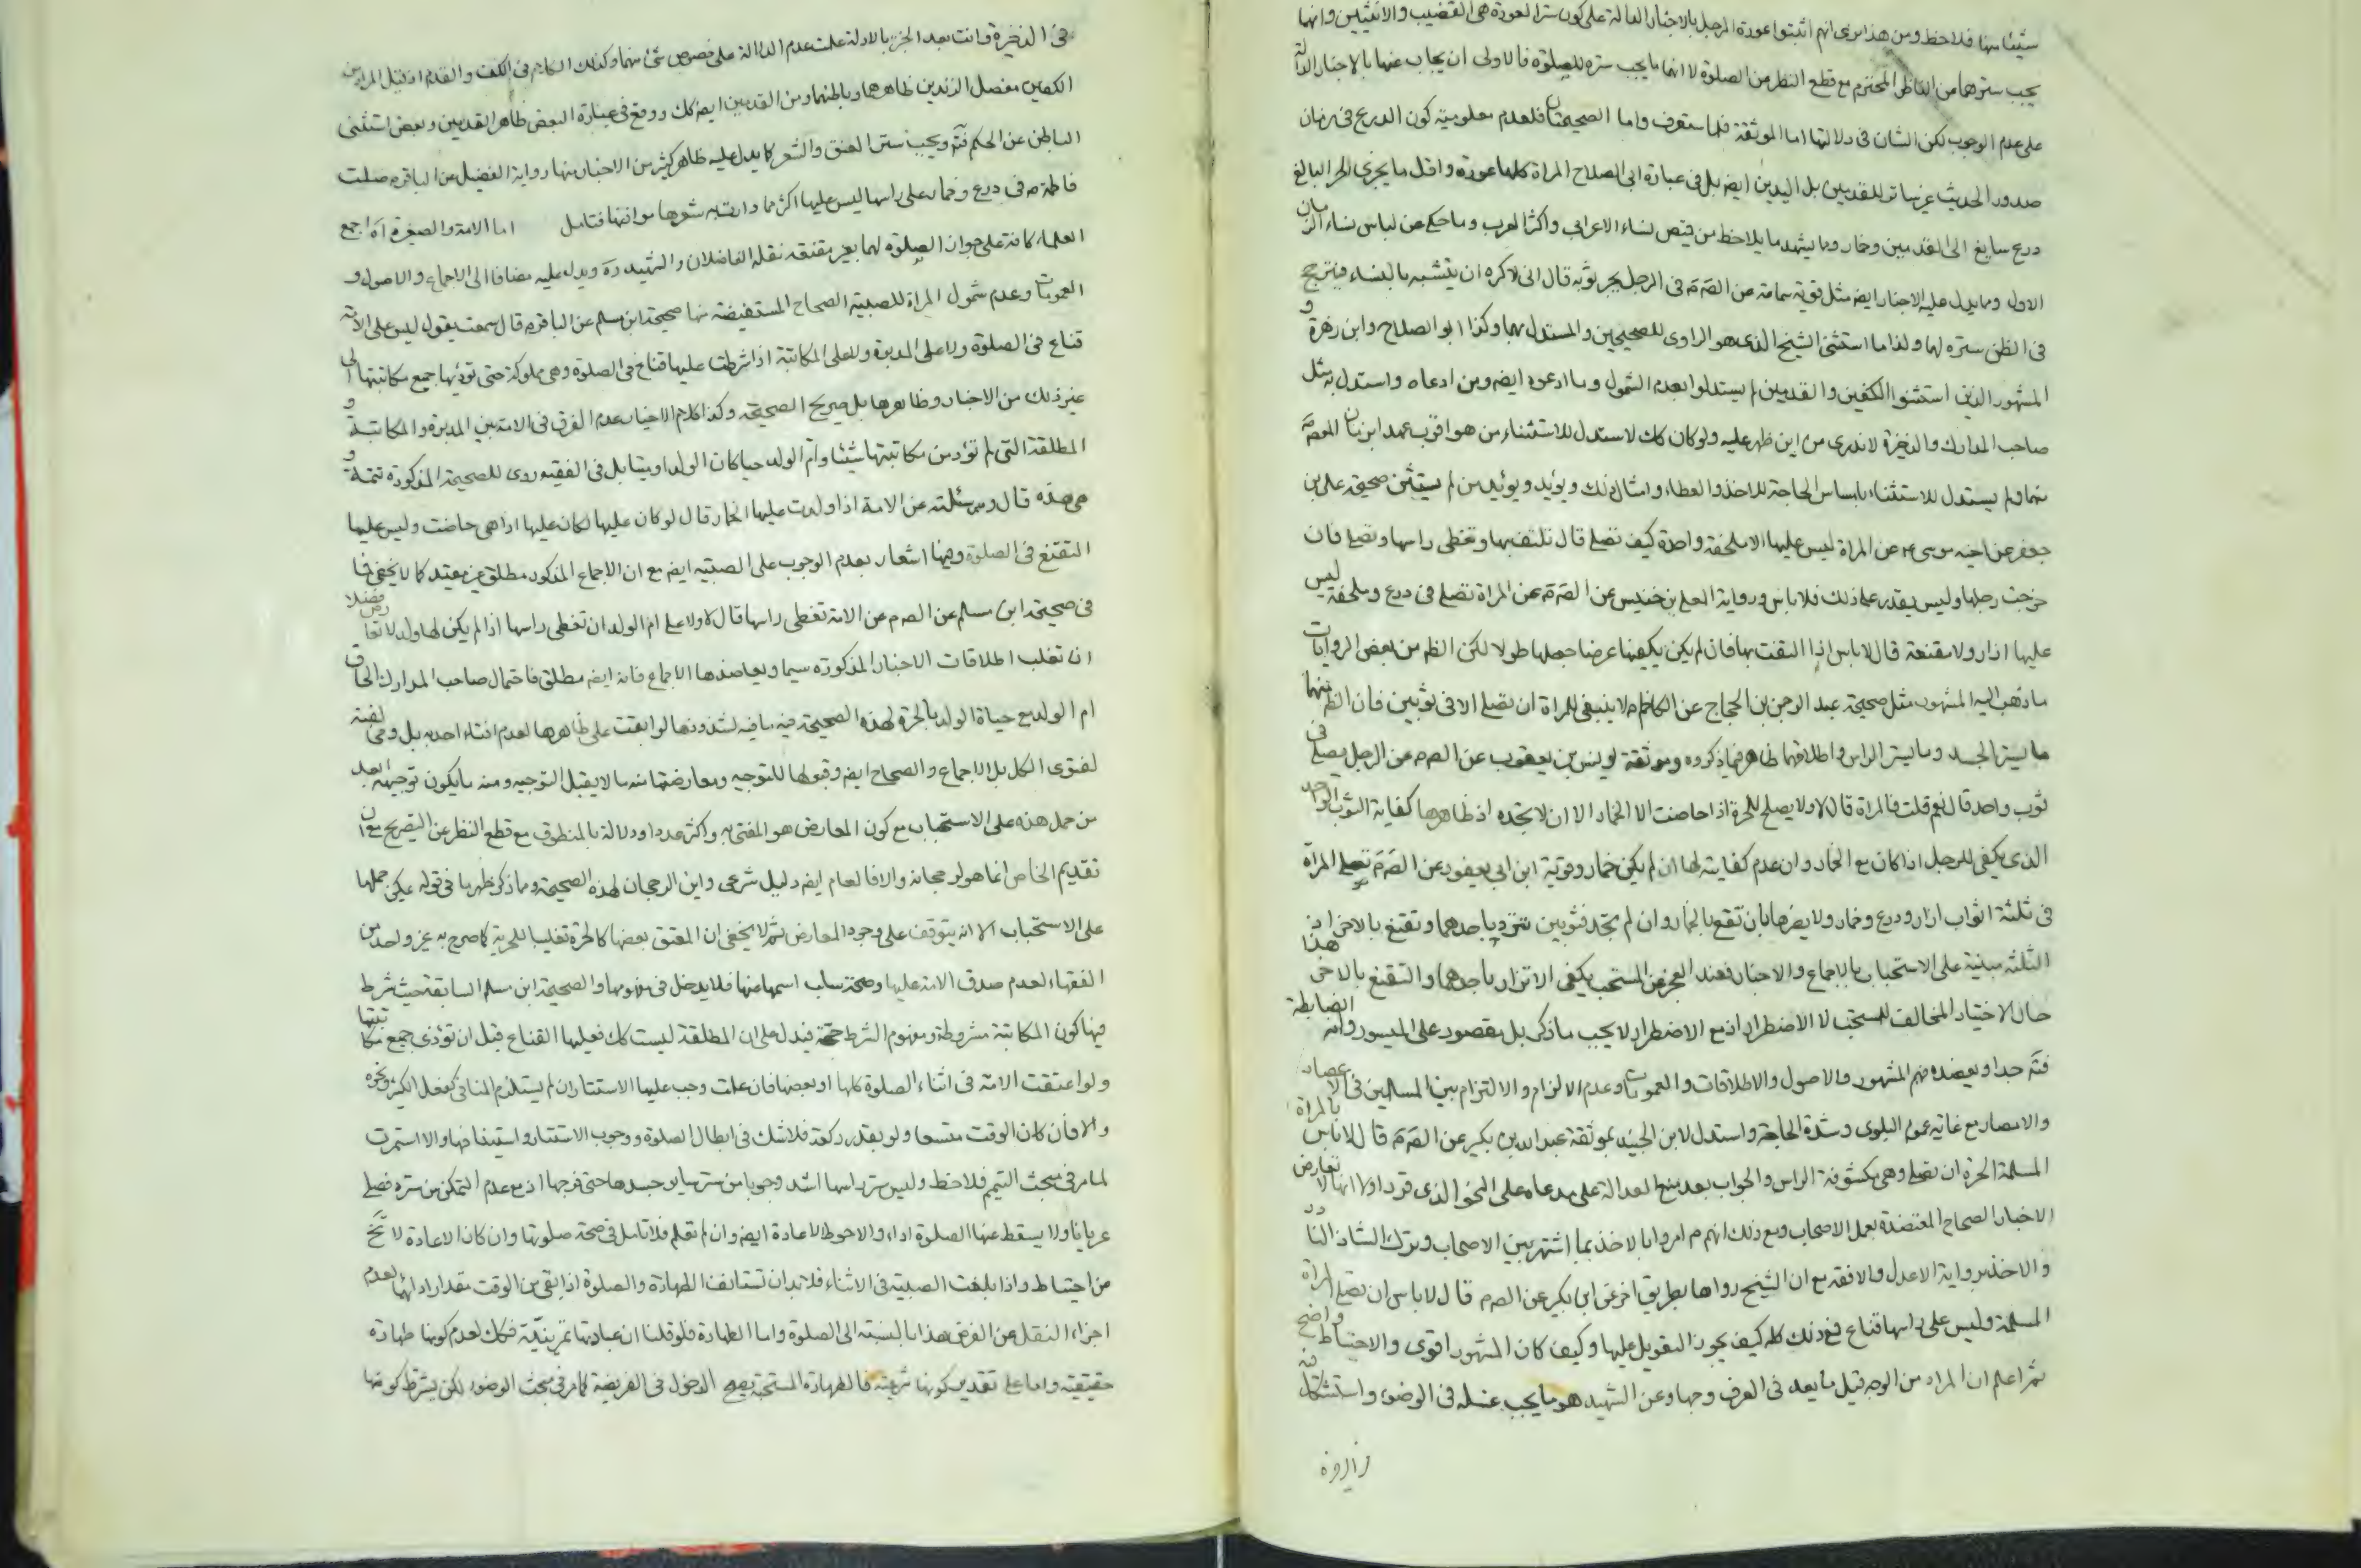 شيئا منها فلاحظ ومن هذا برى انهم اثبتوا عورة الرجل بالاخبار الدالة على كون ستر العورة هى القضيب والانثيين وانها
يجب سترهما من الناظر المحترم مع قطع النظر من الصلوة لا انها مما يجب ستره للصلوة فالاولى ان يجاب عنها بالاخبار الدالة
على عدم الوجوب لكن الشان فى دلالتها اما الموثقة فلما ستعرف واما الصحيحتان فلعدم معلومية كون الدرع فى زمان
صدور الحديث غير ساتر للقدمين بل اليدين ايضه بل فى عبارة ابى الصلاح المراة كلها عورة واقل ما يجزى الحر البالغ
درع سابغ الى القدمين وخمار ومما يشهد ما يلاحظ من قيص نساء الاعرابى واكثر العرب وما حكى عن لباس نساء الزمان
الاول ومما يدل عليه الاخبار ايضه مثل قوية سماعة عن الصم فى الرجل يجر ثوبه قال انى لاكره ان يتشبه بالنساء فيترجح
فى الظن ستره لها ولذا ما استثنى الشيخ الذى هو الراوى للصحيحين والمستدل بهما وكذا ابو الصلاح وابن زهرة و
المشهور الذين استثنوا الكفين والقدمين لم يستدلوا بعدم الشمول وما ادعوه ايضه ومن ادعاه واستدل به مثل
صاحب المدارك والذخيرة لاندرى من اين ظهر عليه ولو كان كك لاستدل للاستثناء من هو اقرب عهد ابزمان المعصوم
منهما ولم يستدل للاستثناء بامساس الحاجة للاخذ والعطاء وامثال ذلك ويؤيد ويؤيد من لم يستثن صحيحة على بن
جعفر عن اخيه موسى ع عن المراة ليس عليها الا ملحفة واحدة كيف تصلى قال تلتف بها وتغطى راسها وتصلى فان
خرجت رجلها وليس يقدر على ذلك فلا باس ورواية المعلى بن خنيس عن الصم عن المراة تصلى فى درع وملحفة ليس
عليها ازار ولا مقنعة قال لا باس اذا التفت بها فان لم يكن يكفيها عرضا جعلها طولا لكن الظ من بعض الروايات
ما ذهب اليه المشهور مثل صحيحة عبد الرحمن بن الحجاج عن الكاظم ع لا ينبغى للمراة ان تصلى الا فى ثوبين فان الظ منهما
ما يستر الجسد وما يستر الراس واطلاقهما ظاهر فيما ذكروه وموثقة يونس بن يعقوب عن الصم عن الرجل يصلى فى
ثوب واحد قال نعم قلت فالمراة قال لا ولا يصلح للحرة اذا حاضت الا الخمار الا ان لا تجده اذ ظاهرها كفاية الثوب الواحد
الذى يكفى للرجل اذا كان مع الخمار وان عدم كفايته لها ان لم يكن خمار وقوية ابن ابى يعفور عن الصم تصلى المراة
فى ثلثة اثواب ازار ودرع وخمار ولا يضرها بان تقنع بالخمار وان لم تجد فثوبين تتزر باحدهما وتقنع بالاخر اذ هذا
الثلثة مبنية على الاستحباب بالاجماع والاخبار فعند العجز عن المستحب يكفى الاتزار باحدهما والتقنع بالاخر
حال الاختيار المخالف للمستحب لا الاضطرار اذ مع الاضطرار لا يجب ما ذكر بل مقصور على الميسور وانه الضابطة
فته جدا ويعضده فهم المشهور والاصول والاطلاقات والعمومات وعدم الالزام والالتزام بين المسلمين فى الاعصار
والامصار مع غاية عموم البلوى وشدة الحاجة واستدل لابن الجنيد بموثقة عبد الله بن بكير عن الصم قال لا باس بالمراة
المسلمة الحرة ان تصلى وهى مكشوفة الراس والجواب بعد منع الدلالة على مدعاه على النحو الذى قرر اولا انها لا تعارض
الاخبار الصحاح المعتضدة بعمل الاصحاب ومع ذلك انهم م امروا بالاخذ بما اشتهر بين الاصحاب وترك الشاذ النادر
والاخذ برواية الاعدل والافقه مع ان الشيخ رواها بطريق اخر عن ابن بكير عن الصم قال لا باس ان تصلى المراة
المسلمة وليس على راسها قناع فمع ذلك كله كيف يجوز التعويل عليها وكيف كان المشهور اقوى والاحتياط واضح
ثم اعلم ان المراد من الوجه قيل ما يعد فى العرف وجها وعن الشهيد هو ما يجب غسله فى الوضوء واستشكل فيه
فى الذخيرة
فى الذخيرة وانت بعد الخبر بالادلة علمت عدم الدلالة على خصوص شئ منهما وكذلك الكلام فى الكف والقدم اذ قيل المراد من
الكفين مفصل الزندين ظاهرهما وباطنهما ومن القدمين ايضه كك ووقع فى عبارة البعض ظاهر القدمين وبعض استثنى
الباطن عن الحكم فته ويجب ستر العنق والشعر كما يدل عليه ظاهر كثير من الاخبار منها رواية الفضيل عن الباقر م صلت
فاطمة م فى درع وخمار على راسها ليس عليها اكثر مما وارت به شعرها واذنيها فتامل اما الامة والصغيرة آه اجمع
العلماء كافة على جواز الصلوة لهما بغير مقنعة نقله الفاضلان والشهيد ره ويدل عليه مضافا الى الاجماع والاصول و
العمومات وعدم شمول المراة للصبية الصحاح المستفيضة منها صحيحة ابن مسلم عن الباقر م قال سمعت يقول ليس على الامة
قناع فى الصلوة ولا على المدبرة ولا على المكاتبة اذا شرطت عليها قناع فى الصلوة وهى مملوكة حتى تؤديها جميع مكاتبتها الى
غير ذلك من الاخبار وظاهرها بل صريح الصحيحة وكذا كلام الاخيار عدم الفرق فى الامة بين المدبرة والمكاتبة و
المطلقة التى لم تؤد من مكاتبتها شيئا وام الولد حيا كان الولد او ميتا بل فى الفقيه روى للصحيحة المذكورة تتمة و
هى هذه قال وسئلته عن الامة اذا ولدت عليها الخمار قال لو كان عليها لكان عليها اذا هى حاضت وليس عليها
التقنع فى الصلوة وفيها اشعار بعدم الوجوب على الصبية ايضه مع ان الاجماع المذكور مطلق غير مقيد كما لا يخفى فما
فى صحيحة ابن مسلم عن الصم عن الامة تغطى راسها قال لا ولا على ام الولد ان تغطى راسها اذا لم يكن لها ولد لا تعارض فضلا
ان تغلب اطلاقات الاخبار المذكورة سيما ويعاضدها الاجماع فانه ايضه مطلق فاحتمال صاحب المدارك الحاق
ام الولد مع حياة الولد بالحرة لهذه الصحيحة فيه ما فيه لشذوذها لو ابقت على ظاهرها لعدم افتاء احد به بل ومخالفته
لفتوى الكل بل الاجماع والصحاح ايضه وقبولها للتوجيه ومعارضتها منه ما لا يقبل التوجيه ومنه ما يكون توجيهه ابعد
من حمل هذه على الاستحباب مع كون المعارض هو المفتى به واكثر عددا ودلالة بالمنطوق مع قطع النظر عن التصريح مع ان
تقديم الخاص انما هو لرجحانه والا فالعام ايضه دليل شرعى واين الرجحان لهذه الصحيحة ومما ذكر ظهر ما فى قوله يمكن حملها
على الاستحباب الا انه يتوقف على وجود المعارض ثم لا يخفى ان المعتق بعضها كالحرة تغليبا للحرية كما صرح به غير واحد من
الفقهاء لعدم صدق الامة عليها وصحة سلب اسمها عنها فلا يدخل فى مفهومها والصحيحة ابن مسلم السابقة حيث شرط
فيها كون المكاتبة مشروطة ومفهوم الشرط حجة فيدل على ان المطلقة ليست كك فعليها القناع قبل ان تؤدى جميع مكاتبتها
ولو اعتقت الامة فى اثناء الصلوة كلها او بعضها فان علمت وجب عليها الاستتار ان لم يستلزم المنافى كفعل الكثير ونحوه
والا فان كان الوقت متسعا ولو بقدر ركعة فلا شك فى ابطال الصلوة ووجوب الاستتار واستينافها والا استمرت
لما مر فى مبحث التيمم فلاحظ وليس ستر راسها اشد وجوبا من ستر ساير جسدها حتى فرجها اذ مع عدم التمكن من ستره تصلى
عريانا ولا يسقط عنها الصلوة اداء والاحوط الاعادة ايضه وان لم تعلم فلا تامل فى صحة صلوتها وان كان الاعادة لا تخ
من احتياط واذا بلغت الصبية فى الاثناء فلابد ان تستانف الطهارة والصلوة اذا بقى من الوقت مقدار ادائها لعدم
اجزاء النفل عن الفرض هذا بالنسبة الى الصلوة واما الطهارة فلو قلنا ان عبادتها تمرينية فكك لعدم كونها طهارة
حقيقية واما على تقدير كونها شرعية فالطهارة المستحبة يصح الدخول فى الفريضة كما مر فى مبحث الوضوء لكن يشترط كونها